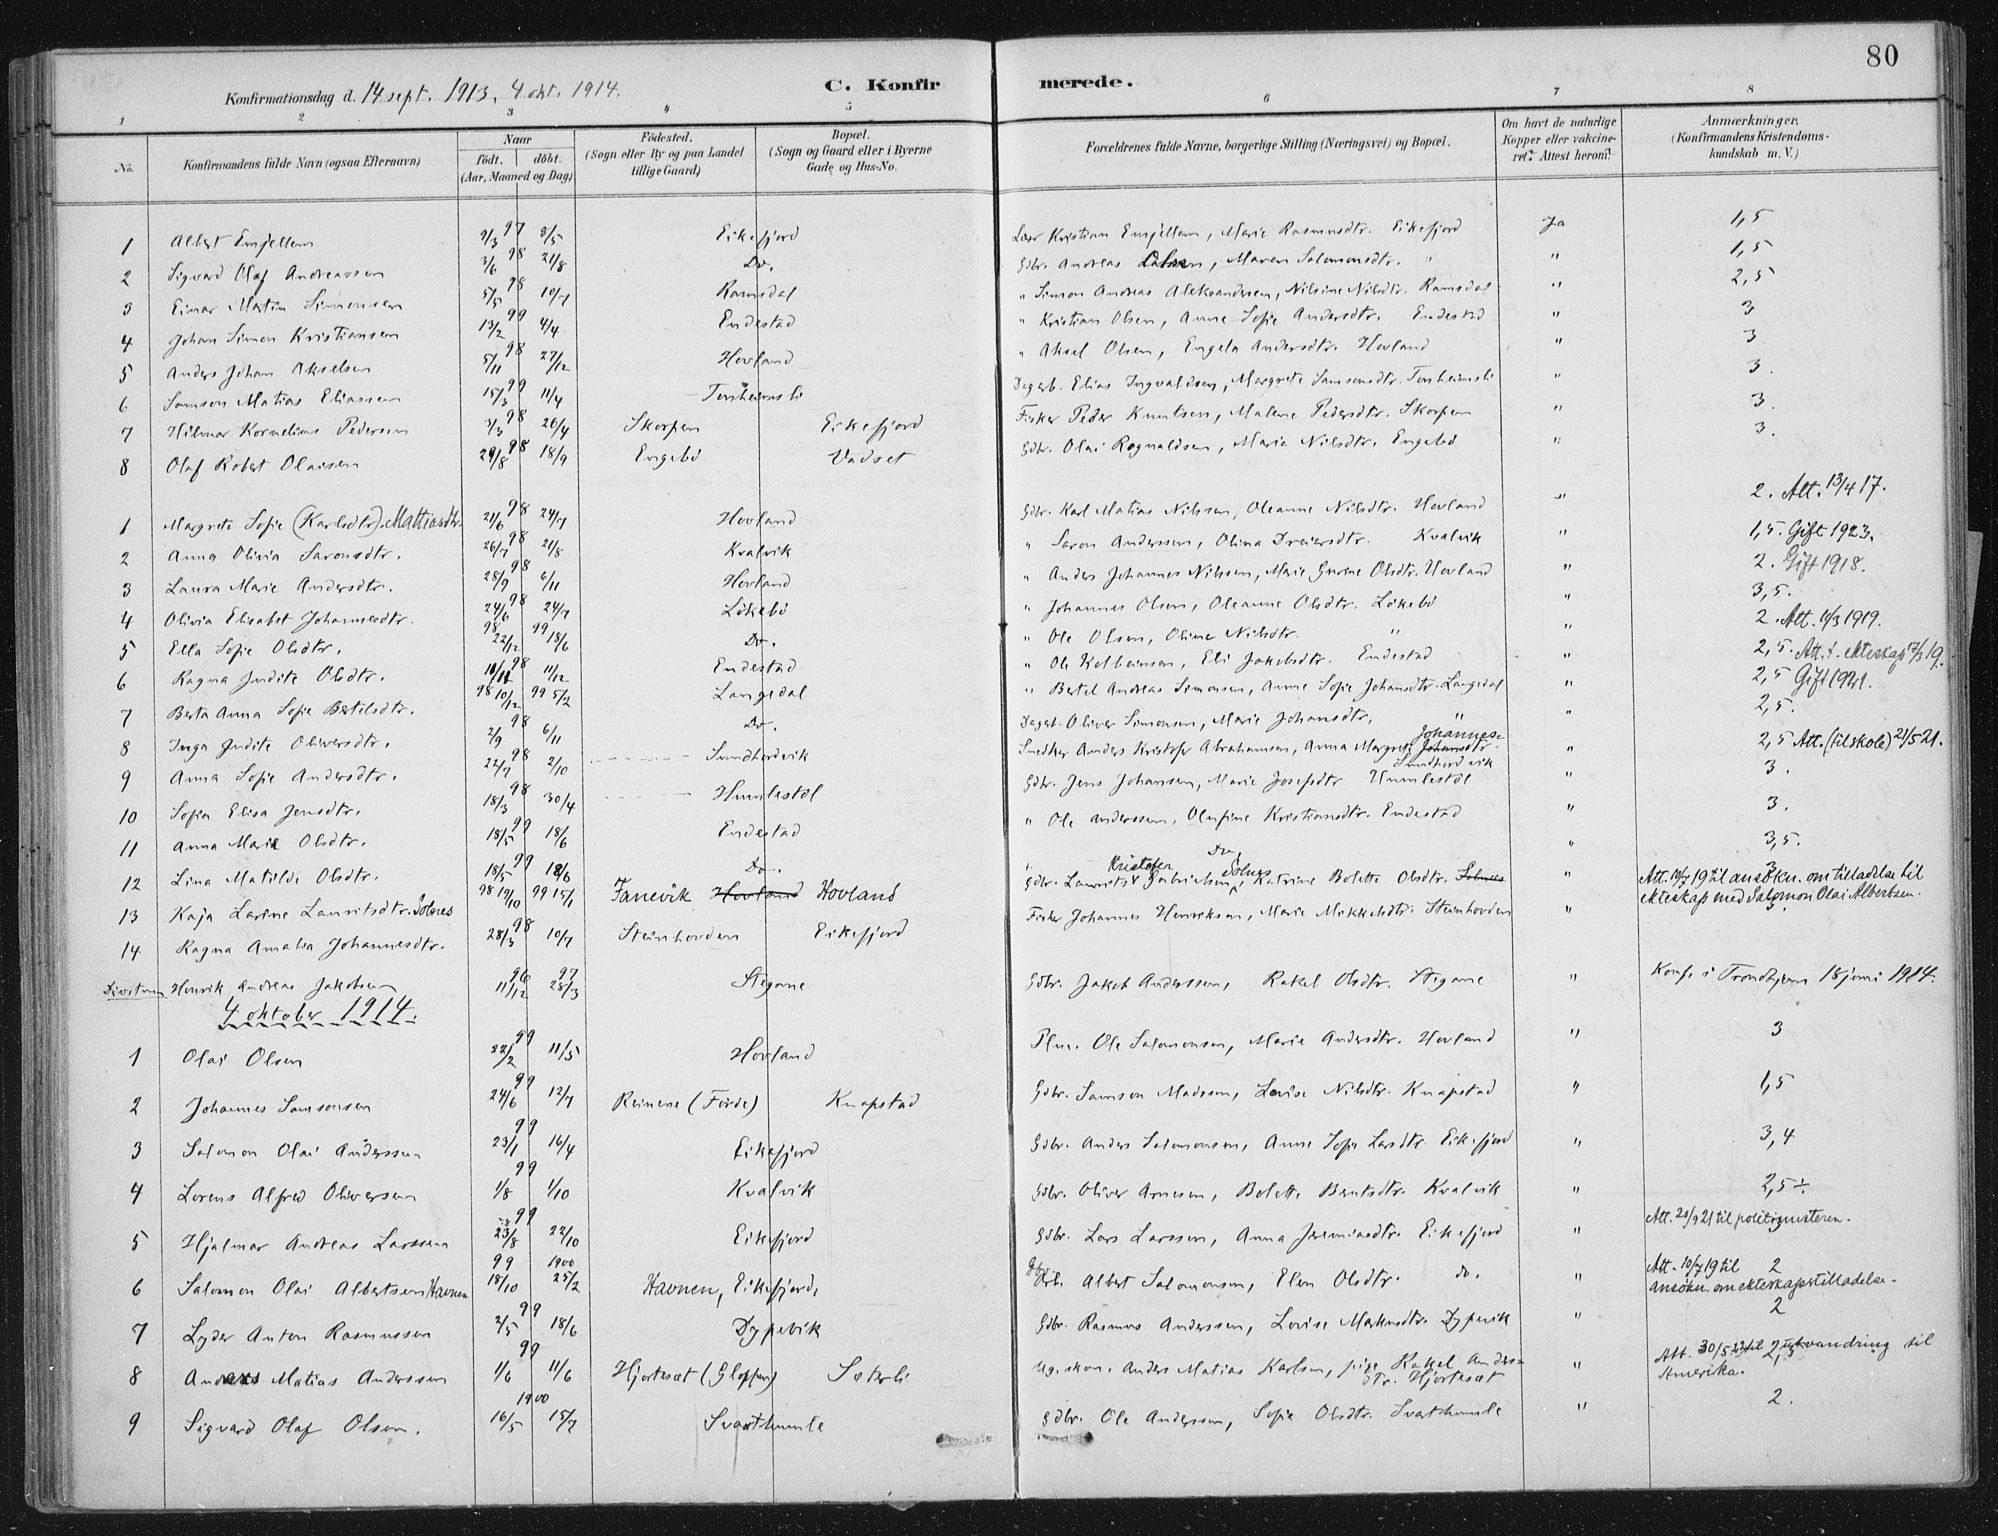 80
Konfirmationsdag d. 14 sept. 1913, 4 okt. 1914. C. Konfirmerede.
1 2 3 " 5 6 7 8
No. Konfirmandens fulde Navn (ogsaa Efternavn) Naar födt. döbt. (Aar, Maaned og Dag) Födested. (Sogn eller By og paa Landet tillige Gaard) Bopæl. (Sogn og Gaard eller i Byerne Gade og Hus-No. Forældrenes fulde Navne, borgerlige Stilling (Næringsvei) og Bopæl. Om havt de naturlige Kopper eller vakcineret? Attest herom? Anmærkninger. (Konfirmandens Kristendomskundskab m. V.)
1 Albert 9/3 97 8/5 Eikefjord Lær Kristian Marie Rasmusdtr. Eikefjord Ja 1,5
2 Sigvard Olaf Andreassen 3/6 98 21/8 Do. Gdbr. Andreas Maren Salomonsdtr. " " 1,5
3 Einar Martin Simonsen 5/5 98 10/7 Ramsdal " Simon Andreas Aleksandersen, Nilsine Nilsdtr. Ramsdal " 2,5
4 Johan Simon Kristiansen 13/2 99 4/4 Endestad " Kristian Olsen, Anne Sofie Andersdtr. Endestad " 3
5 Anders Johan Akselsen 5/11 98 27/12 Hovland " Aksel Olsen, Engela Andersdtr. Hovland " 3
6 Samson Matias Eliassen 15/3 99 11/4 Tonheimsli Dagarb. Elias Ingvaldsen, Margrete Samsonsdtr. Tonheimsli " 3.
7 Hilmar Kornelius Pedersen 3/3 98 26/4 Skorpen Eikefjord Fisker Peder Knutsen, Malene Pedersdtr. Skorpen " 3.
8 Olaf Robert Olaisen 29/8 98 18/9 Engebö Vadset Gdbr. Olai Rognaldsen, Marie Nilsdtr. Engebö " 3.
1 Margrete Sofie (Karlsdtr). Mattiasdtr. 21/6 98 24/7 Hovland Gdbr. Karl Matias Nilssen, Oleanne Nilsdtr. Hovland " 2. Att. 13/4 17.
2 Anna Olivia Saronsdtr. 26/7 98 21/8 Kvalvik " Saron Anderssen, Olina Dreiersdtr. Kvalvik " 1,5. Gift 1923.
3 Laura Marie Andersdtr. 28/9 98 6/11 Hovland " Anders Johannes Nilssen, Marie Gurine Olsdtr. Hovland " 2. Gift 1918.
4 Olivia Elisabet Johannesdtr. 24/6 98 24/7 Lökebö " Johannes Olsen, Oleanne Olsdtr. Lökebö " 3,5.
5 Ella Sofie Olsdtr. 98 22/12 99 18/6 Do. " Ole Olsen, Oline Nilsdtr. " " 2. Att. 11/3 1919.
6 Ragna Judite Olsdtr. 10/11 98 11/12 Endestad " Ole Kolbeinsen, Eli Jakobsdtr. Endestad " 2,5. Att. t. ekteskap 19.
7 Berta Anna Sofie Bertilsdtr. 98 10/12 99 5/2 Langedal " Bertel Andreas Simonsen, Anne Sofie Johansdtr. Langedal " 2,5 Gift 1921.
8 Inga Judite Oliversdtr. 2/9 98 6/11 Do. Dagarb. Oliver Simonsen, Marie Johansdtr. " " 2,5.
9 Anna Sofie Andersdtr. 22/7 98 2/10 Sundhordvik Snedker Anders Kristofer Abrahamsen, Anna Margrete Johannesdtr. Sundhordvik " 2,5 Att. (til skole) 21/5 21.
10 Sofia Elisa Jensdtr. 18/3 98 30/4 Humlestöl Gdbr. Jens Johansen, Marie Josefsdtr Humlestöl " 3.
11 Anna Marie Olsdtr. 18/5 99 18/6 Endestad " Ole Anderssen, Olufine Kristiansdtr. Endestad " 3.
12 Lina Matilde Olsdtr. 18/5 99 18/6 Do. " Do. " 3,5.
13 Kaja Larine Lauritsdtr. Solnes 98 19/10 99 15/1 Fanevik Hovland Hovland Gdbr. Laurits Kristofer Gabrielsen Solnes, Katrine Bolette Olsdtr. Solnes " 3 Att. 10/7 19 til ansökn. om tilladelse til ekteskap med Salomon Olai Albertsen.
14 Ragna Amalia Johannesdtr. 28/3 98 10/7 Steinhovden Eikefjord Fisker Johannes Henriksen, Marie Mikkelsdtr. Steinhovden " 3
Henrik Andreas Jakobsen 96 11/12 97 28/3 Stegane Gdbr. Jakob Anderssen, Rakel Olsdtr. Stegane " Konf. i Trondhjem 18 juni 1914.
4 oktober 1914.
1 Olai Olsen 22/2 99 11/5 Hovland Plm. Ole Salomonsen, Marie Andersdtr. Hovland " 3
2 Johannes Samsonsen 24/6 99 12/7 Reinene (Förde) Knapstad Gdbr. Samson Madssen, Lovise Nilsdtr. Knapstad " 1,5
3 Salomon Olai Anderssen 23/1 99 16/4 Eikefjord Gdbr. Anders Salomonsen, Anne Sofie Larsdtr. Eikefjord " 3,4
4 Lorens Alfred Oliversen 1/8 99 1/10 Kvalvik Gdbr. Oliver Arnesen, Bolette Berntsdtr. Kvalvik " 2,5 ÷
5 Hjalmar Andreas Larssen 23/8 99 22/10 Eikefjord Gdbr. Lars Larssen, Anna Jeremiasdtr. Eikefjord " Att. 20/9 21 til politimesteren.
6 Salomon Olai Albertsen Havnen 99 18/10 1900 25/2 Havnen, Eikefjord. Albert Salomonsen, Elen Olsdtr. do. " Att. 10/7 19 til 2 ansökn. om ekteskapstilladelse.
7 Lyder Anton Rasmussen 2/5 99 18/6 Dypevik Gdbr. Rasmus Anderssen, Lovise Markusdtr. Dypevik " 2
8 Andreas Matias Anderssen 1/6 99 11/6 Hjortesæt (Gloppen) Sæterli Ug. skom. Anders Matias Karlsen, pige Rakel Andersdtr. Hjortesæt " Att. 30/5 til utvandring til Amerika.
9 Sigvard Olaf Olsen. 1900 16/5 15/7 Svarthumle Gdbr. Ole Anderssen, Sofie Olsdtr. Svarthumle " 2.